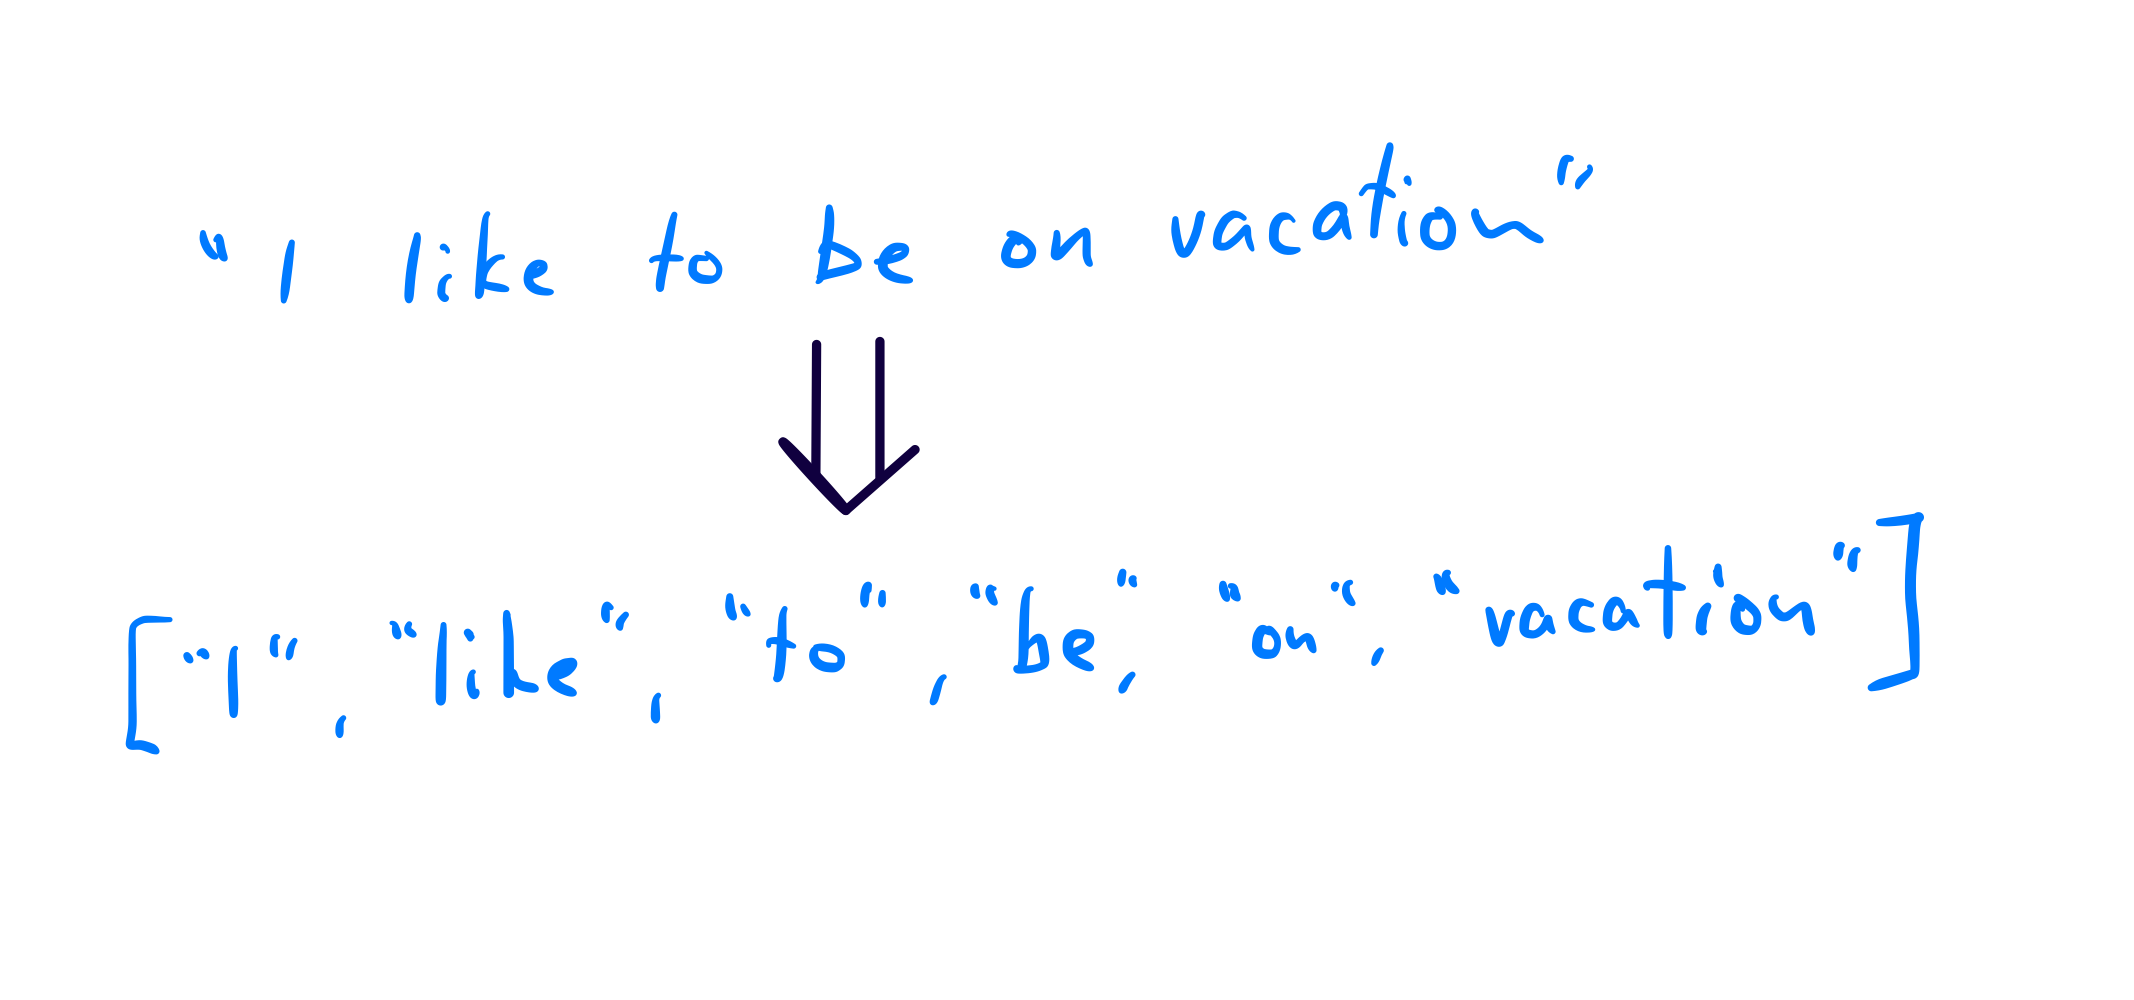 "I like to be on vacation"
["I", "like", "to", "be", "on", "vacation"]